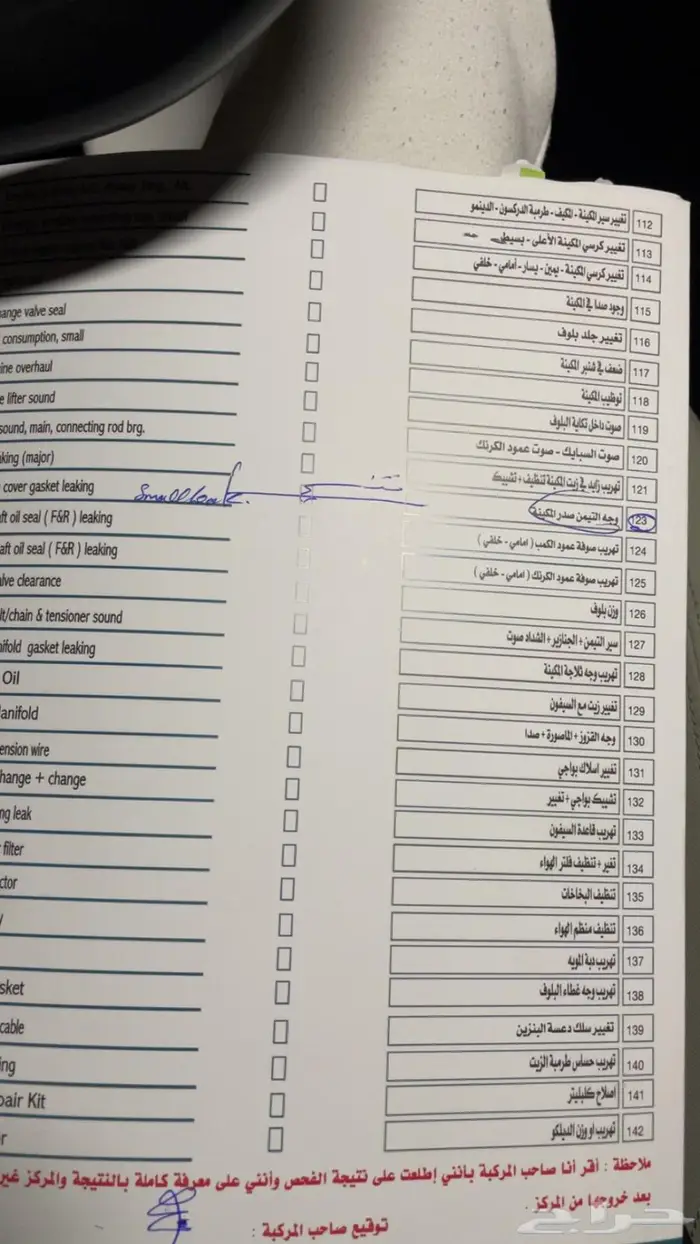 112 تغيير سير المكينة - المكيف - طرمبة الدركسون - الدينمو
113 تغيير كرسي المكينة الأعلى - بسيطي
114 تغيير كرسي المكينة - يمين - يسار - أمامي - خلفي
115 وجود صدا في المكينة
ange valve seal 116 تغيير جلد بلوف
consumption, small 117 ضعف في شنبر المكينة
ine overhaul 118 توظيب المكينة
e lifter sound 119 صوت داخل تكاية البلوف
sound, main, connecting rod brg. 120 صوت السبايك - صوت عمود الكرنك
king (major) 121 تهريب زايد في زيت المكينة تنظيف + تشييك
cover gasket leaking Small leak. 123 وجه التيمن صدر المكينة
ft oil seal ( F&R ) leaking 124 تهريب صوفة عمود الكمب ( امامي - خلفي )
aft oil seal ( F&R ) leaking 125 تهريب صوفة عمود الكرنك ( امامي - خلفي )
lve clearance 126 وزن بلوف
lt/chain & tensioner sound 127 سير التيمن + الجنازير + الشداد صوت
nifold gasket leaking 128 تهريب وجه ثلاجة المكينة
Oil 129 تغيير زيت مع السيفون
anifold 130 وجه القزوز + الماصورة + صدا
ension wire 131 تغيير اسلاك بواجي
hange + change 132 تشييك بواجي + تغيير
ng leak 133 تهريب قاعدة السيفون
filter 134 تغير + تنظيف فلتر الهواء
ctor 135 تنظيف البخاخات
y 136 تنظيف منظم الهواء
137 تهريب دبة المويه
sket 138 تهريب وجه غطاء البلوف
cable 139 تغيير سلك دعسة البنزين
ing 140 تهريب حساس طرمبة الزيت
pair Kit 141 اصلاح كلبليتر
r 142 تهريب او وزن الديلكو
ملاحظة : أقر أنا صاحب المركبة بأنني إطلعت على نتيجة الفحص وأنني على معرفة كاملة بالنتيجة والمركز غير
بعد خروجها من المركز .
توقيع صاحب المركبة :
حراج